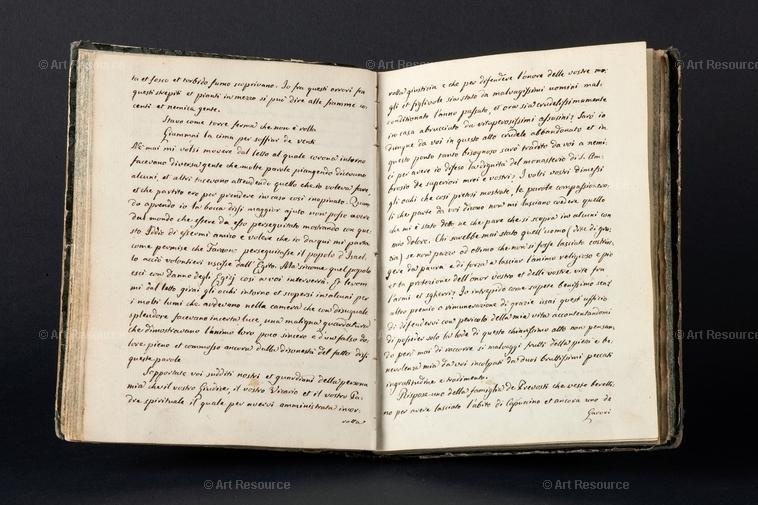 ta et fosco et torbido fumo scoprivano. Io fra questi orrori fra
questi strepiti et pianti in mezzo si può dire alle fiamme co-
centi et nemica gente.
Stavo come torre ferma che non è rolla
Giammai la cima per soffiar de venti
Nè mai mi volsi movere dal letto al quale corona intorno
facevano diversa gente che molte parole piangendo dicevano
alcuni, et altri tacevano attendendo quello che io volevo fare,
et che partito ero per prendere in caso così inopinato. Quan-
do aprendo io la bocca dissi maggior ajuto non posso avere
dal mondo che essere da esso perseguitato mostrando con que-
sto Iddio di essermi amico e volere che io da qui mi parta
come permise che Faraone perseguitasse il popolo d'Israel-
lo acciò volontieri uscisse dall'Egitto. Ma siccome quel popolo
escì con danno degl'Egizj così a voi interverrà. Et levom-
mi dal letto girai gli occhi intorno et scopersi in alcuni per
i molti lumi che ardevano nella camera che con disuguale
splendore facevano incerta luce, una maligna guardatura
che dimostravano l'animo loro poco sincero e d'un falso do-
lore pieno et commosso ancora dalla disonestà del fatto dissi
queste parole.
Sopportate voi sudditi nostri et guardiani della persona
mia che il vostro Giudice, il vostro Vicario et il vostro Pa-
dre spirituale il quale per avervi amministrata incor-
rotta
rotta giustizia e che per difendere l'onore delle vostre mo-
gli et figlivole sia stato da malvagissimi uomini mal-
condizionato l'anno passato, et ora sia crudelissimamente
in casa abrusciato da vituperosissimi assasini; Sarò io
dunque da voi in questo atto crudele abbandonato et in
questo ponto tanto bisognoso sarò tradito da voi a nemi-
ci per avere io difeso la dignità del monasterio di S. Am-
brosio de superiori miei e vostri; I volti vostri dimessi
gli occhi che così pietosi mostrate, le parole compassionevo-
li che parte da voi dicono non mi lasciano credere quello
che mi è stato detto nè che pare che si scopra in alcuni con
mio dolore. Chi sarebbe mai stato quell'uomo (dite di gra-
zia) se non pazzo od ottimo che non si fosse lasciato costrin-
gere da paura e di forza a lasciar l'animo religioso e pio
et la protezione dell'onor vostro et delle vostre vite fra
l'armi et sgherri; Io intrepido come sapete benissimo senz'
altro premio o rimunerazione di grazie issai quest'uffizio
di difendervi con pericolo della mia vita accontentandomi
di posseder solo la lode di questo chiarissimo atto non pensan-
do però mai di raccorre sì malvaggi frutti della pietà e be-
nevolenza mia da voi incolpati da duoi bruttissimi peccati
ingratitudine e tradimento.
Rispose uno della famiglia de Prevosti che vesso beretti-
no per avere lasciato l'abito di Capuccino et ancora uno de
Gavori
© Art Resource
© Art Resource
© Art Resource
© Art Resource
© Art Resource
© Art Resource
© Art Resource
© Art Resource